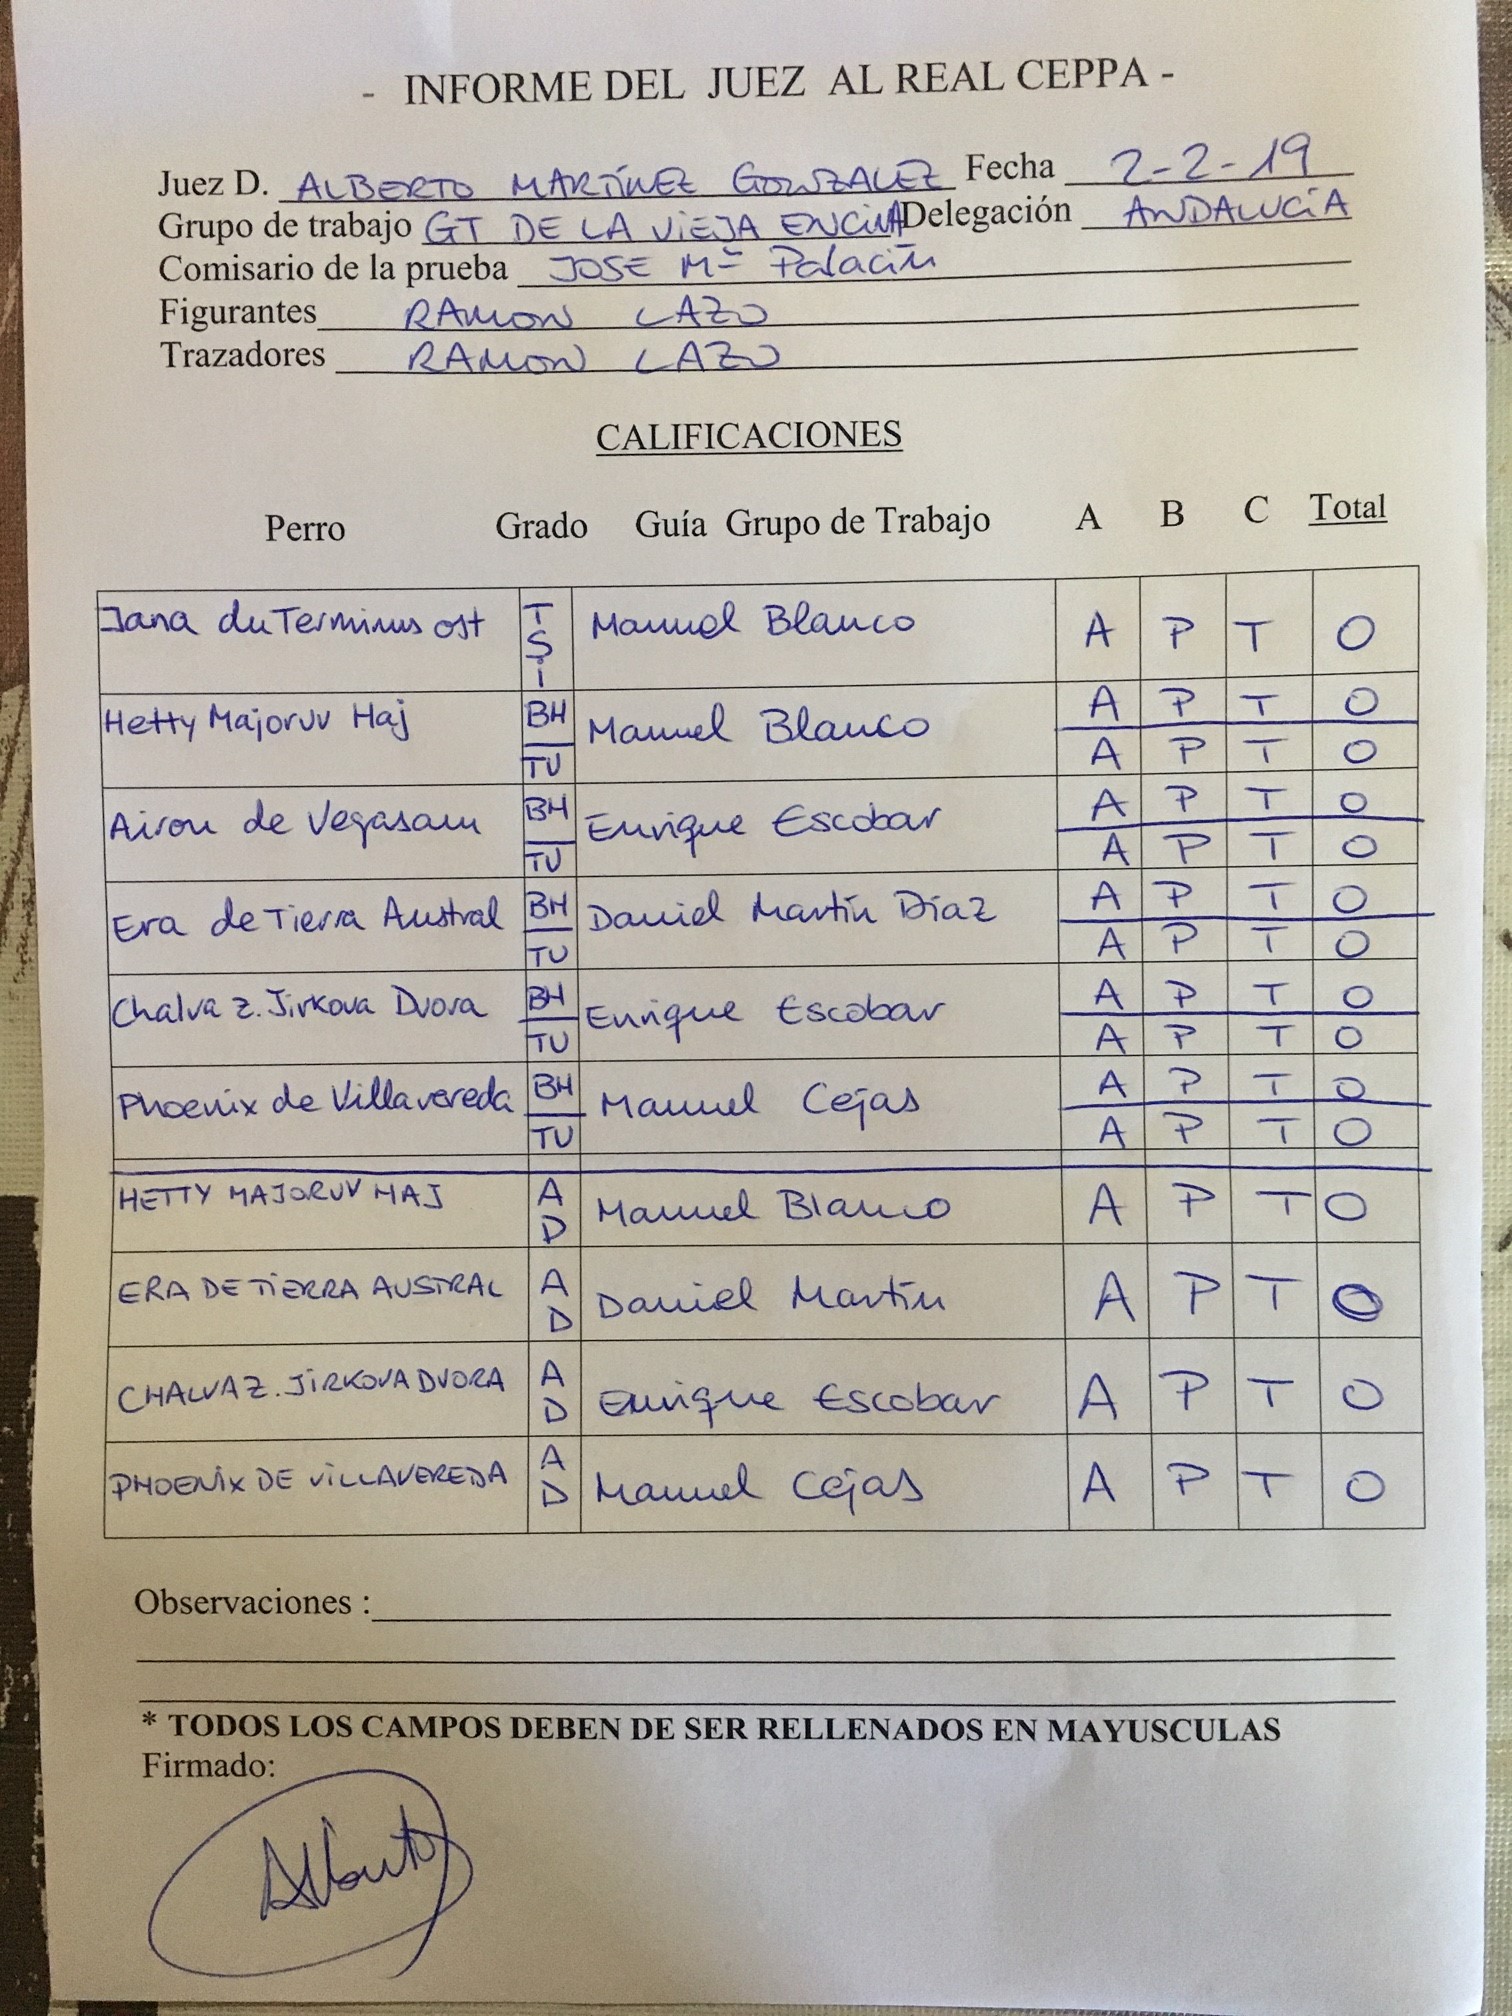 - INFORME DEL JUEZ AL REAL CEPPA -
Juez D. ALBERTO MARTÍNEZ GONZALEZ Fecha 2-2-19
Grupo de trabajo GT DE LA VIEJA ENCINA Delegación ANDALUCIA
Comisario de la prueba JOSE Mª Palacín
Figurantes RAMON LAZO
Trazadores RAMON LAZO
CALIFICACIONES
Perro Grado Guía Grupo de Trabajo A B C Total
Jana du Terminus ost T S 1 Manuel Blanco A P T O
Hetty Majoruv Haj BH Manuel Blanco A P T O
TU A P T O
Airon de Vegasam BH Enrique Escobar A P T O
TU A P T O
Era de Tierra Austral BH Daniel Martín Díaz A P T O
TU A P T O
Chalva z. Jirkova Dvora BH Enrique Escobar A P T O
TU A P T O
Phoenix de Villavereda BH Manuel Cejas A P T O
TU A P T O
HETTY MAJORUV HAJ A D Manuel Blanco A P T O
ERA DE TIERRA AUSTRAL A D Daniel Martín A P T O
CHALVA Z. JIRKOVA DVORA A D Enrique Escobar A P T O
PHOENIX DE VILLAVEREDA A D Manuel Cejas A P T O
Observaciones :
* TODOS LOS CAMPOS DEBEN DE SER RELLENADOS EN MAYUSCULAS
Firmado:
Alberto